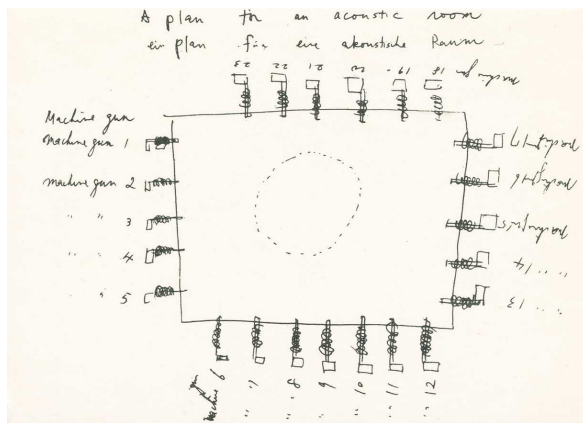 A plan for an acoustic room
ein plan für eine akoustische Raum
23 22 21 20 19 18 machine gun
Machine gun
machine gun 1
machine gun 2
" " 3
" " 4
" 5
machine gun 6
" 7
" " 8
" " 9
" " 10
" " 11
" " 12
" " 13
" " 14
machine gun 15
machine gun 16
machine gun 17